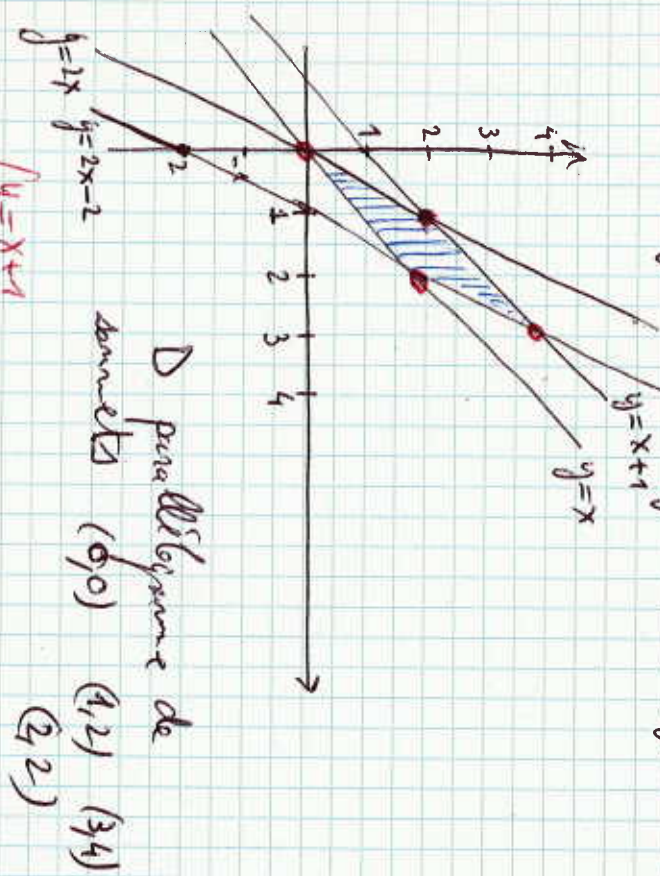 y
4
3
2
1
1
2
3
4
-1
-2
y=x+1
y=x
y=2x
y=2x-2
D parallélogramme de
sommets (0,0) (1,2) (3,4)
(2,2)
y=x+1